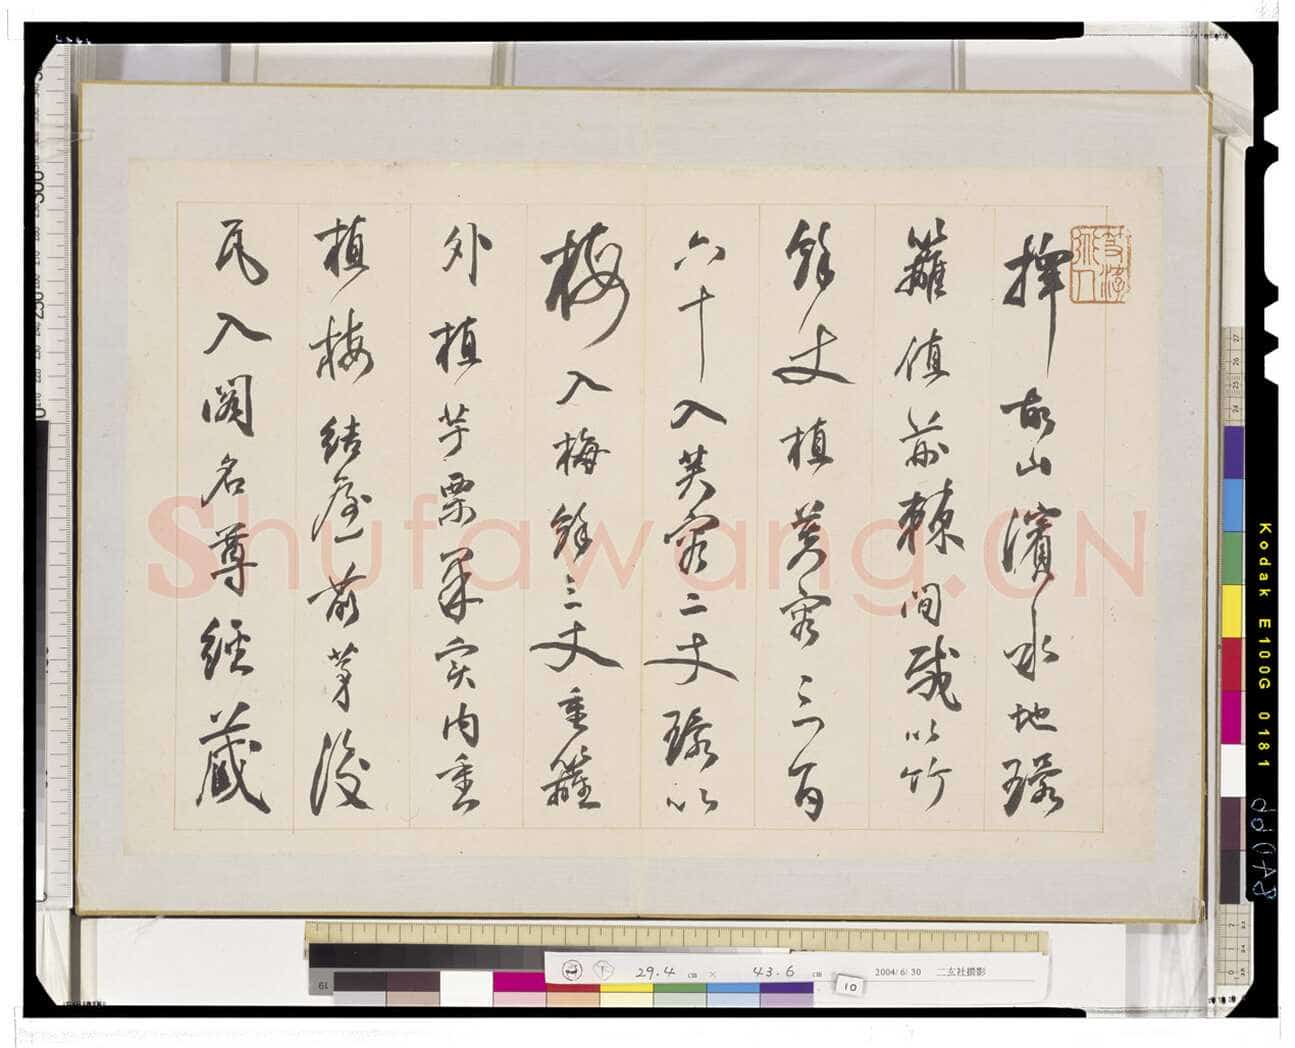 擇故山濱水地環
籬植荊棘間栽以竹
餘丈植芙容三百
六十入芙容二丈環以
梅入梅餘三丈重籬
外植芋栗果实内重
植梅結屋前茅後
瓦入閣名尊經藏
Shufawang.CN
29.4 cm × 43.6 cm
2004/6/30 二玄社撮影
10
Kodak E100G 0181